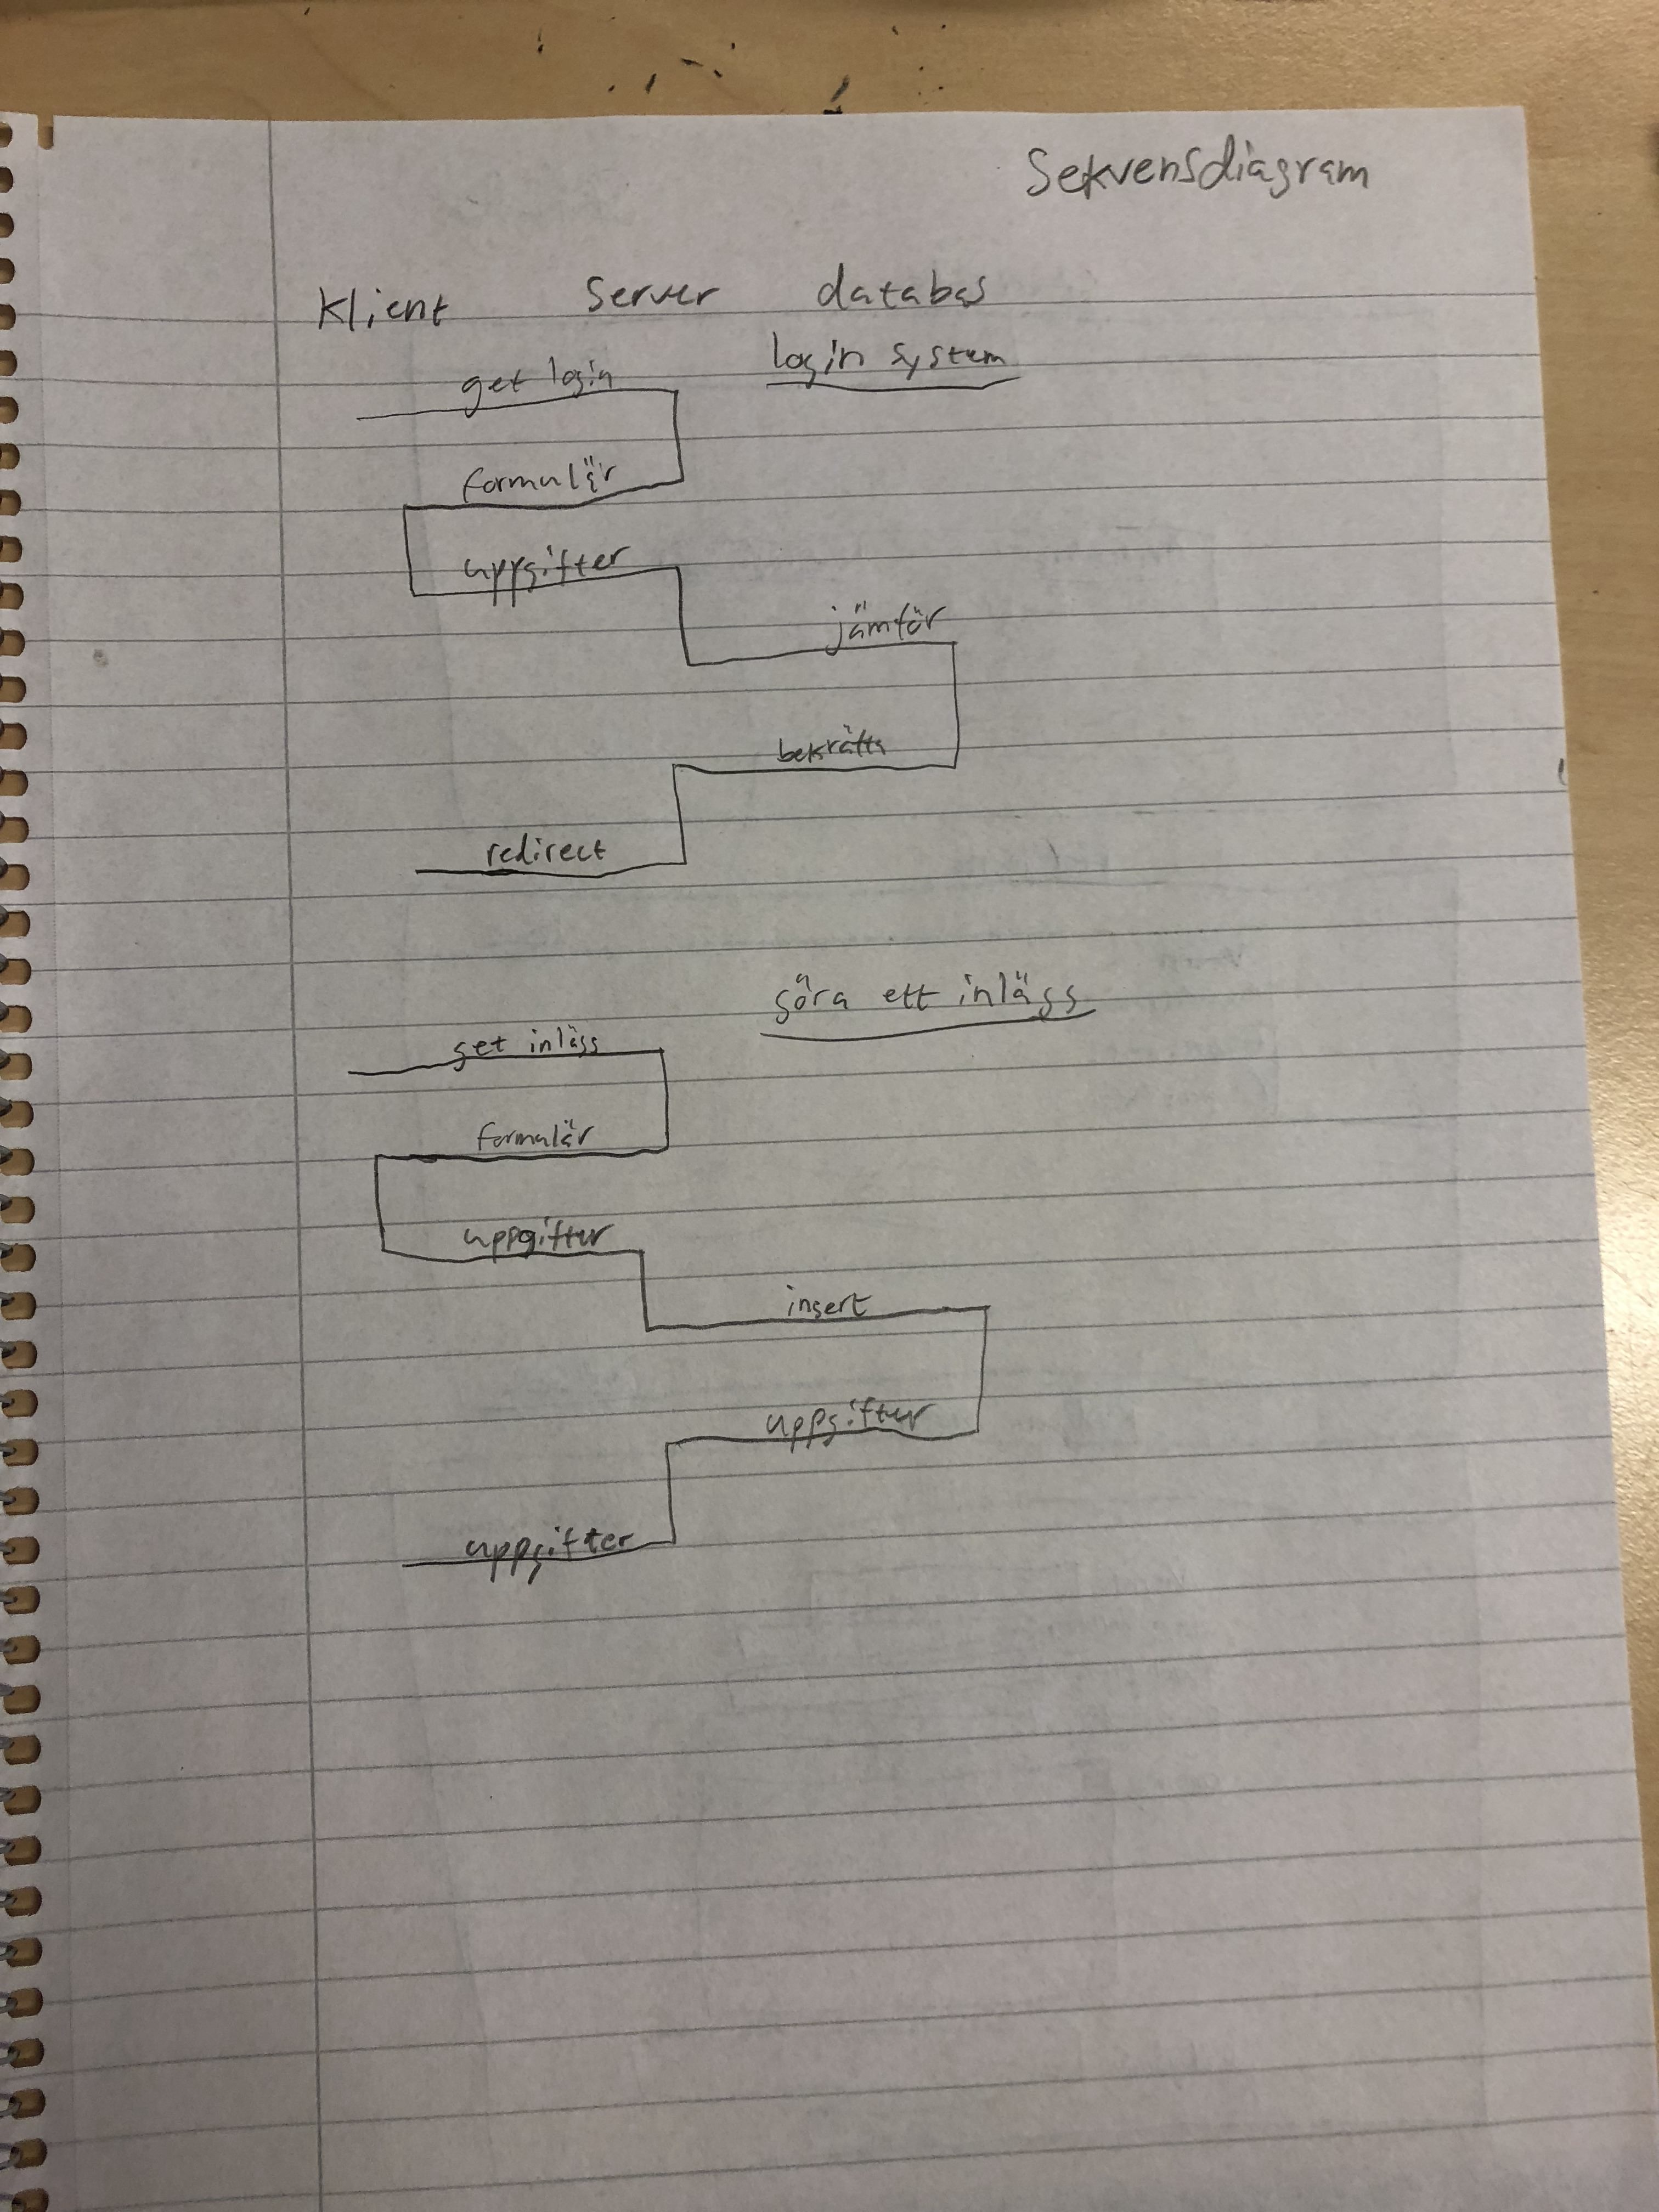 Sekvensdiagram
Klient server databas
login system
get login
formulär
uppgifter
jämför
bekräfta
redirect
göra ett inlägg
get inlägg
formulär
uppgifter
insert
uppgifter
uppgifter